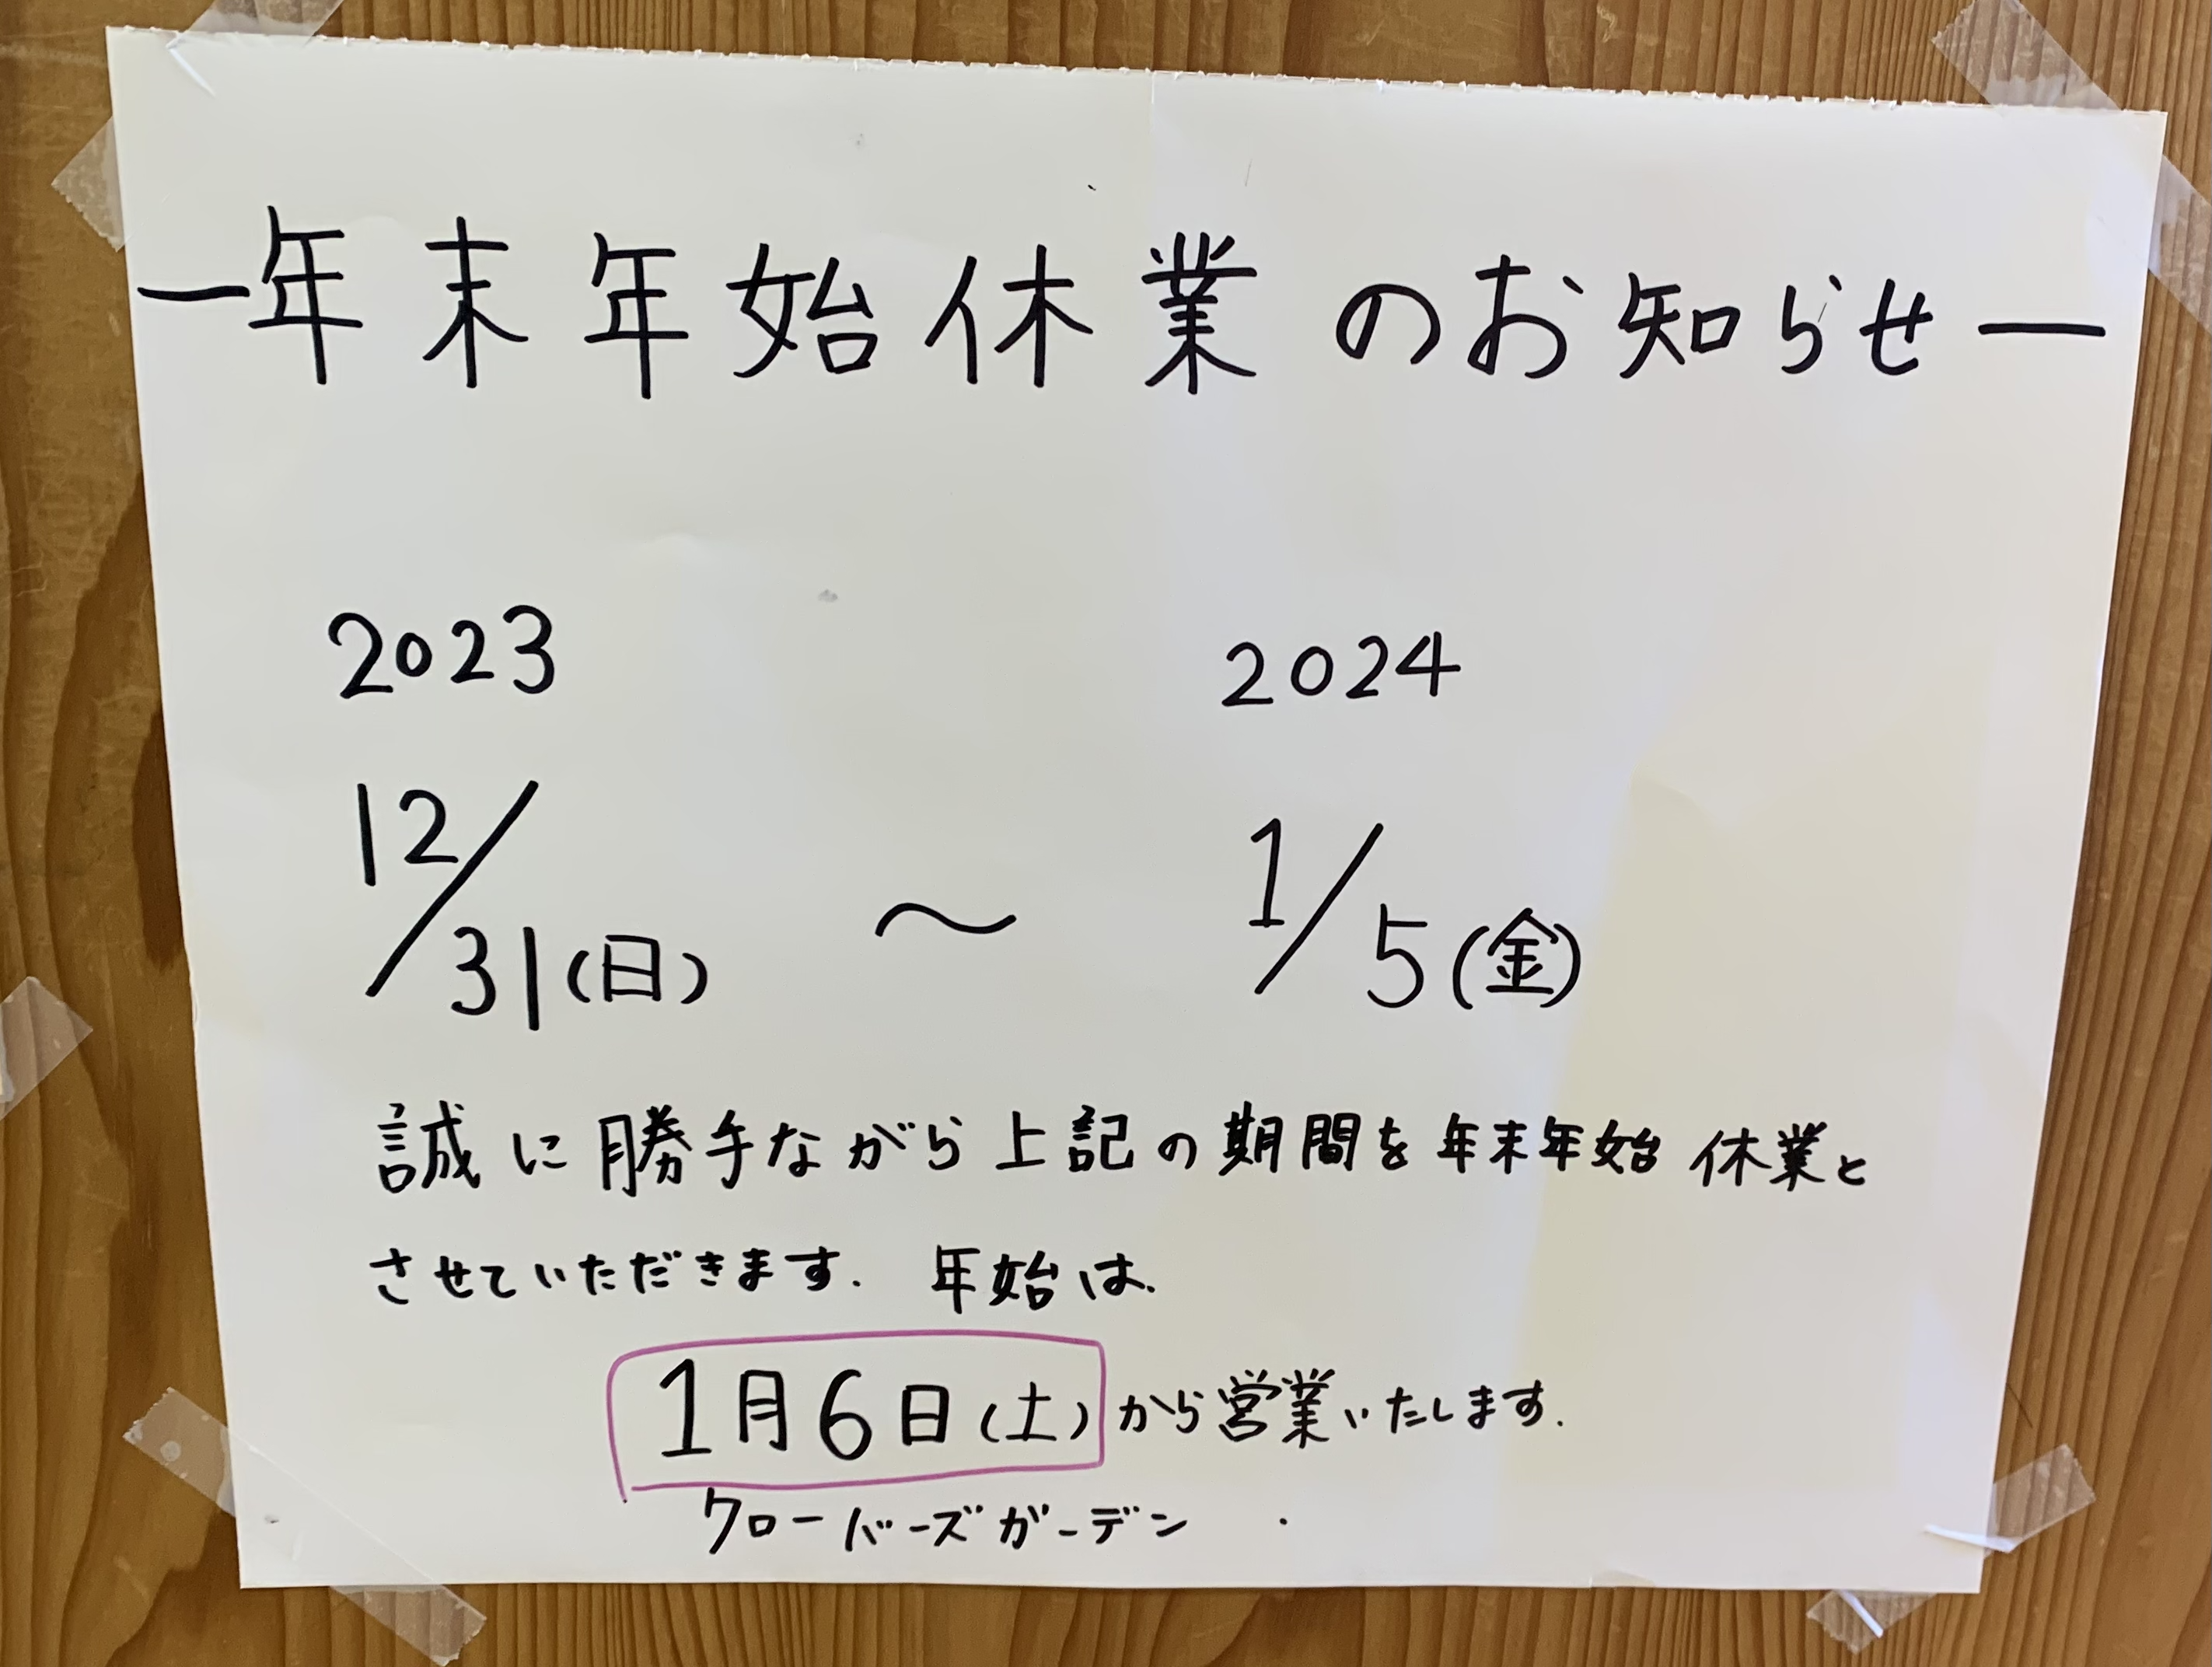 ―年末年始休業のお知らせ―
2023 2024
12/31(日) 〜 1/5(金)
誠に勝手ながら上記の期間を年末年始休業と
させていただきます. 年始は.
1月6日(土)から営業いたします.
クローバーズガーデン